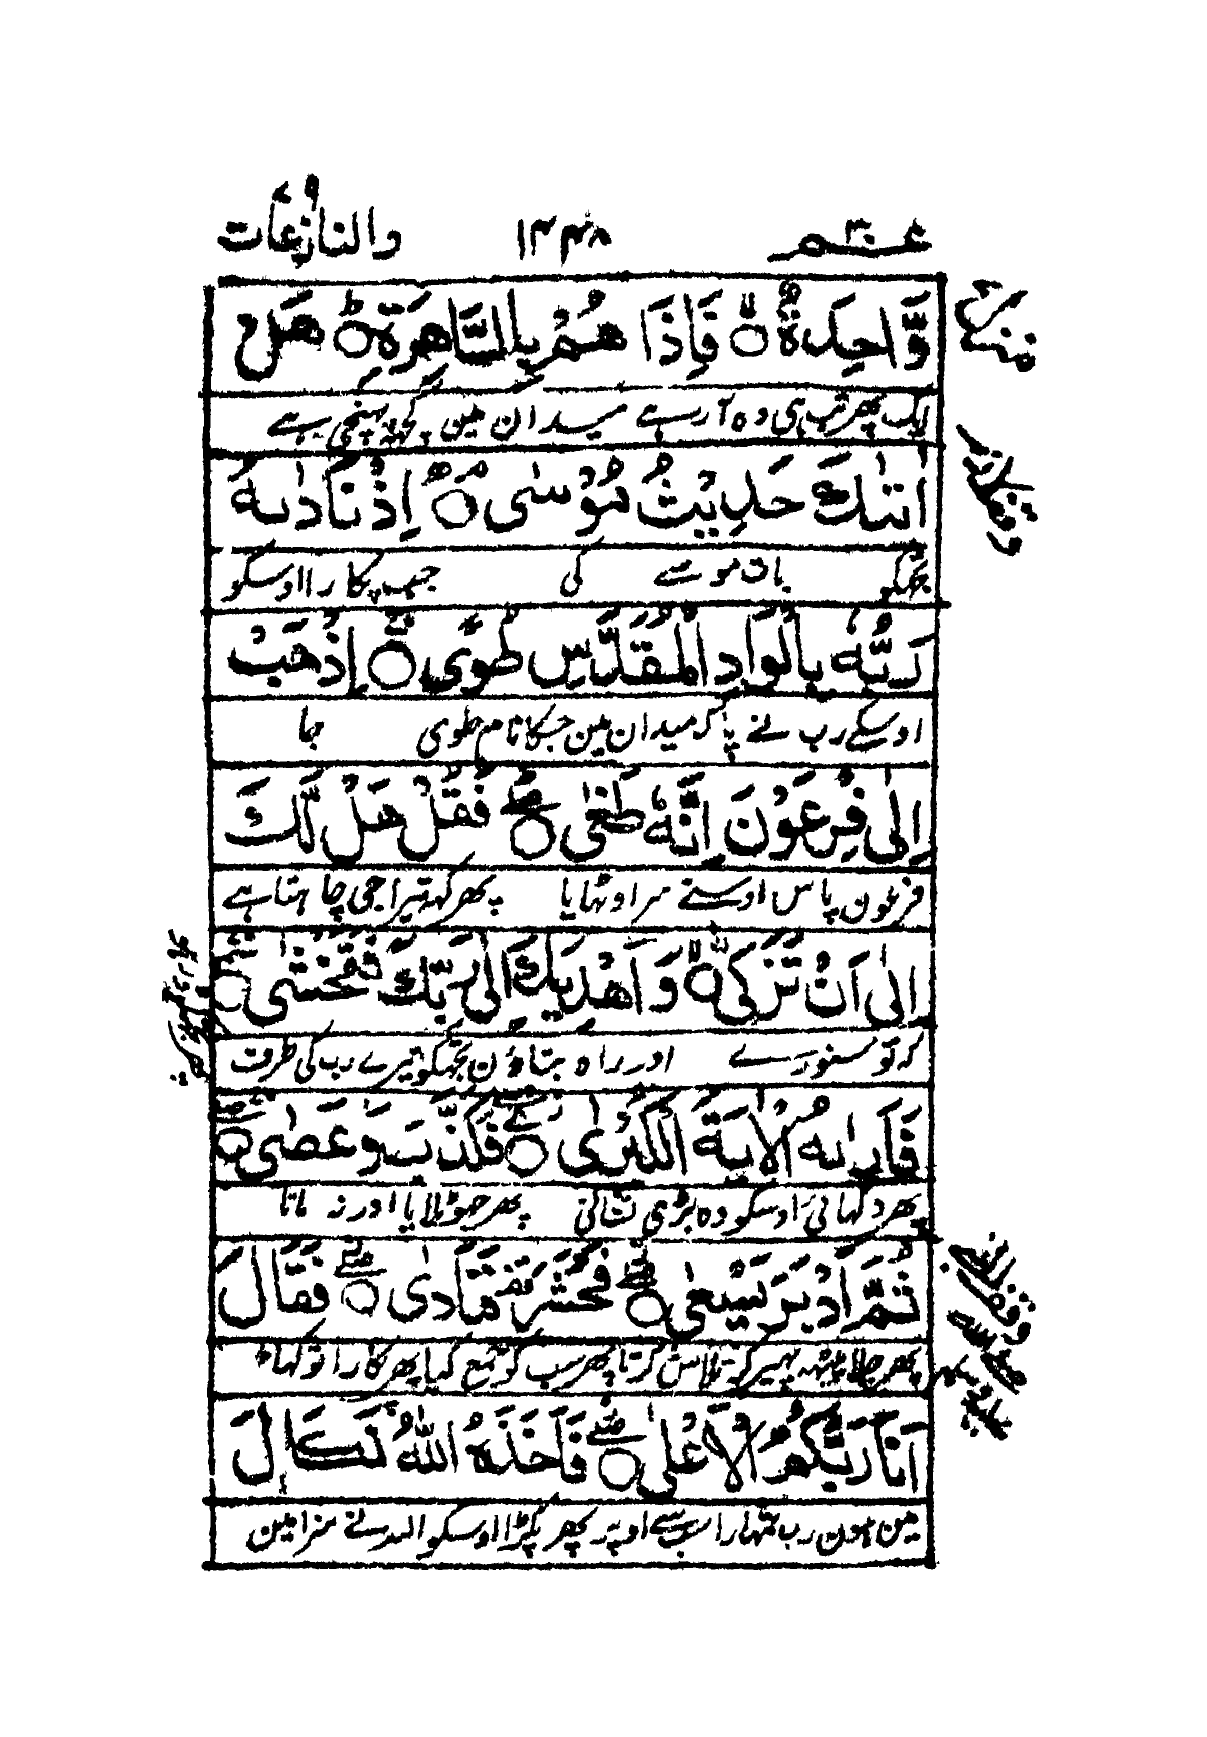 عم ٣٠ ١٣٤٨ والنازعات ٧٩
وَّاحِدَةٌ ○ فَاِذَا هُمْ بِالسَّاهِرَةِ ○ هَلْ
ایک پھر تب ہی وہ آ رہے میدان مین کچھ پہنچی ہے
اَتٰىكَ حَدِيْثُ مُوْسٰى ○ اِذْ نَادٰىهُ
تجھکو بات موسے کی جب پکارا اوسکو
رَبُّهٗ بِالْوَادِ الْمُقَدَّسِ طُوًى ○ اِذْهَبْ
اوسکے رب نے پاک میدان مین جسکا نام طوی جا
اِلٰى فِرْعَوْنَ اِنَّهٗ طَغٰى ○ فَقُلْ هَلْ لَّكَ
فرعون پاس اوسنے سر اوٹھایا پھر کہہ تیرا جی چاہتا ہے
اِلٰى اَنْ تَزَكّٰى ○ وَاَهْدِيَكَ اِلٰى رَبِّكَ فَتَخْشٰى ○
کہ تو سنورے اور راہ بتاؤن تجھکو تیرے رب کی طرف
فَاَرٰىهُ الْاٰيَةَ الْكُبْرٰى ○ فَكَذَّبَ وَعَصٰى ○
پھر دکھائی اوسکو وہ بڑی نشانی پھر جھوٹلایا اور نہ مانا
ثُمَّ اَدْبَرَ يَسْعٰى ○ فَحَشَرَ فَنَادٰى ○ فَقَالَ
پھر چلا پیٹھہ پھیر کر تلاش کرتا پھر سب کو جمع کیا پھر پکارا تو کہا
اَنَا رَبُّكُمُ الْاَعْلٰى ○ فَاَخَذَهُ اللّٰهُ نَكَالَ
مین ہون رب تمہارا سب سے اوپر پھر پکڑا اوسکو اللہ نے سزا مین